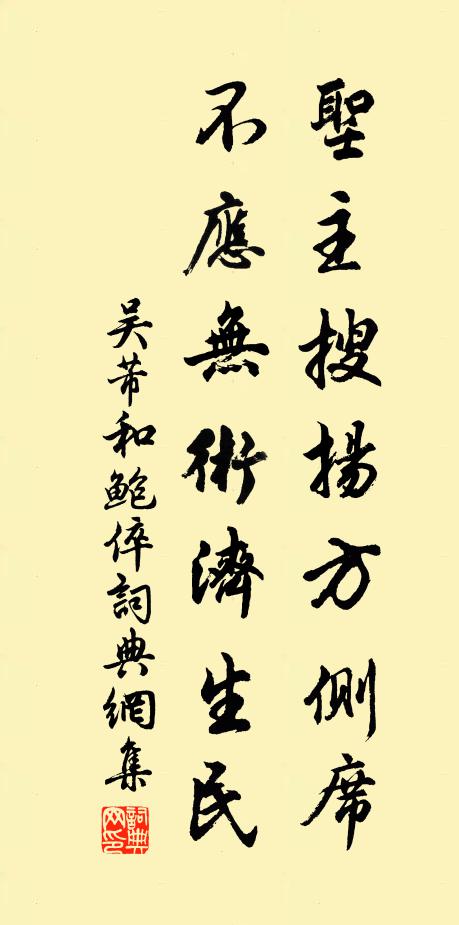 聖主搜揚方側席
不應無術濟生民
吴芾和鮑倅詞典網集
詞典網印